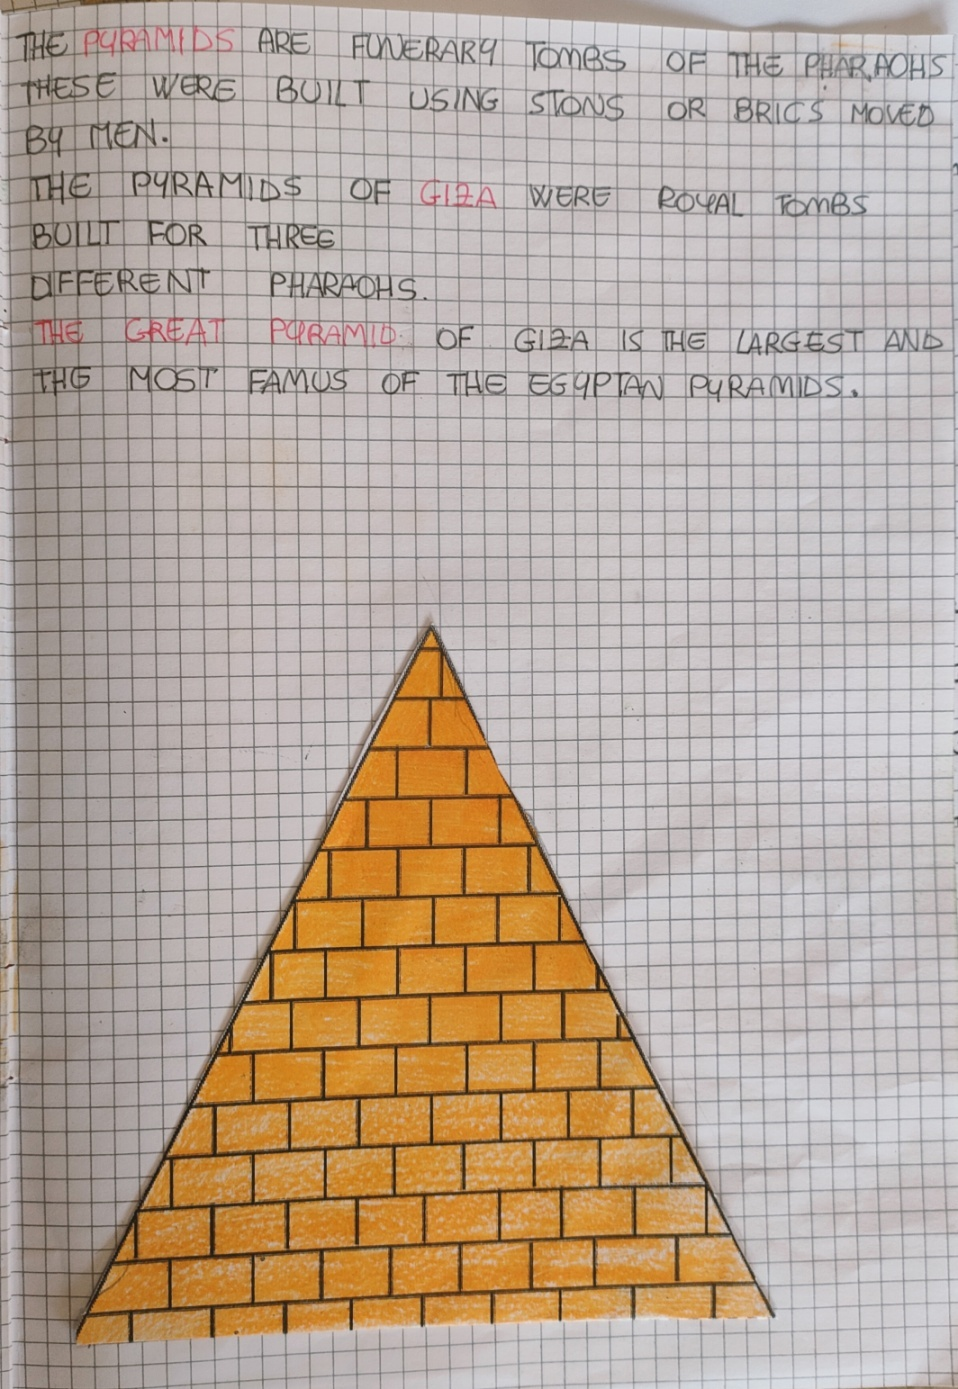 THE PYRAMIDS ARE FUNERARY TOMBS OF THE PHARAOHS
THESE WERE BUILT USING STONS OR BRICS MOVED
BY MEN.
THE PYRAMIDS OF GIZA WERE ROYAL TOMBS
BUILT FOR THREE
DIFFERENT PHARAOHS.
THE GREAT PYRAMID OF GIZA IS THE LARGEST AND
THE MOST FAMUS OF THE EGYPTAN PYRAMIDS.